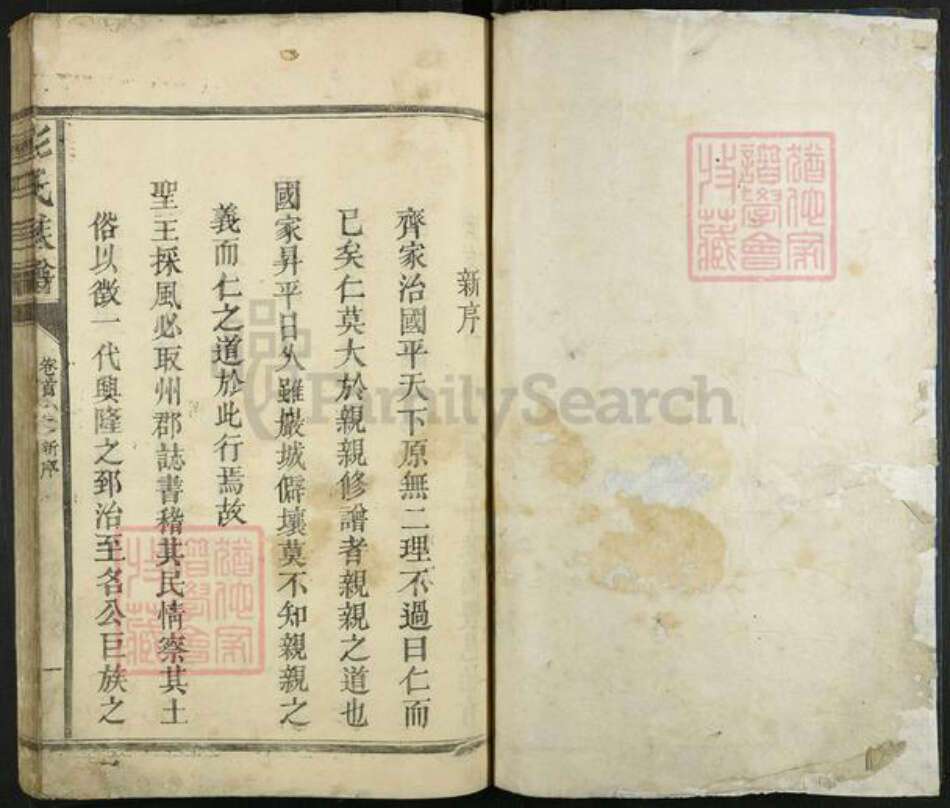 新序
齊家治國平天下原無二理不過曰仁而
已矣仁莫大於親親修譜者親親之道也
國家昇平日久雖巖城僻壤莫不知親親之
義而仁之道於此行焉故
聖王採風必取州郡誌書稽其民情察其土
俗以徵一代興隆之郅治至名公巨族之
氏族譜
卷首 新序
一
猶他家
譜學會
特藏
猶他家
譜學會
特藏
FamilySearch